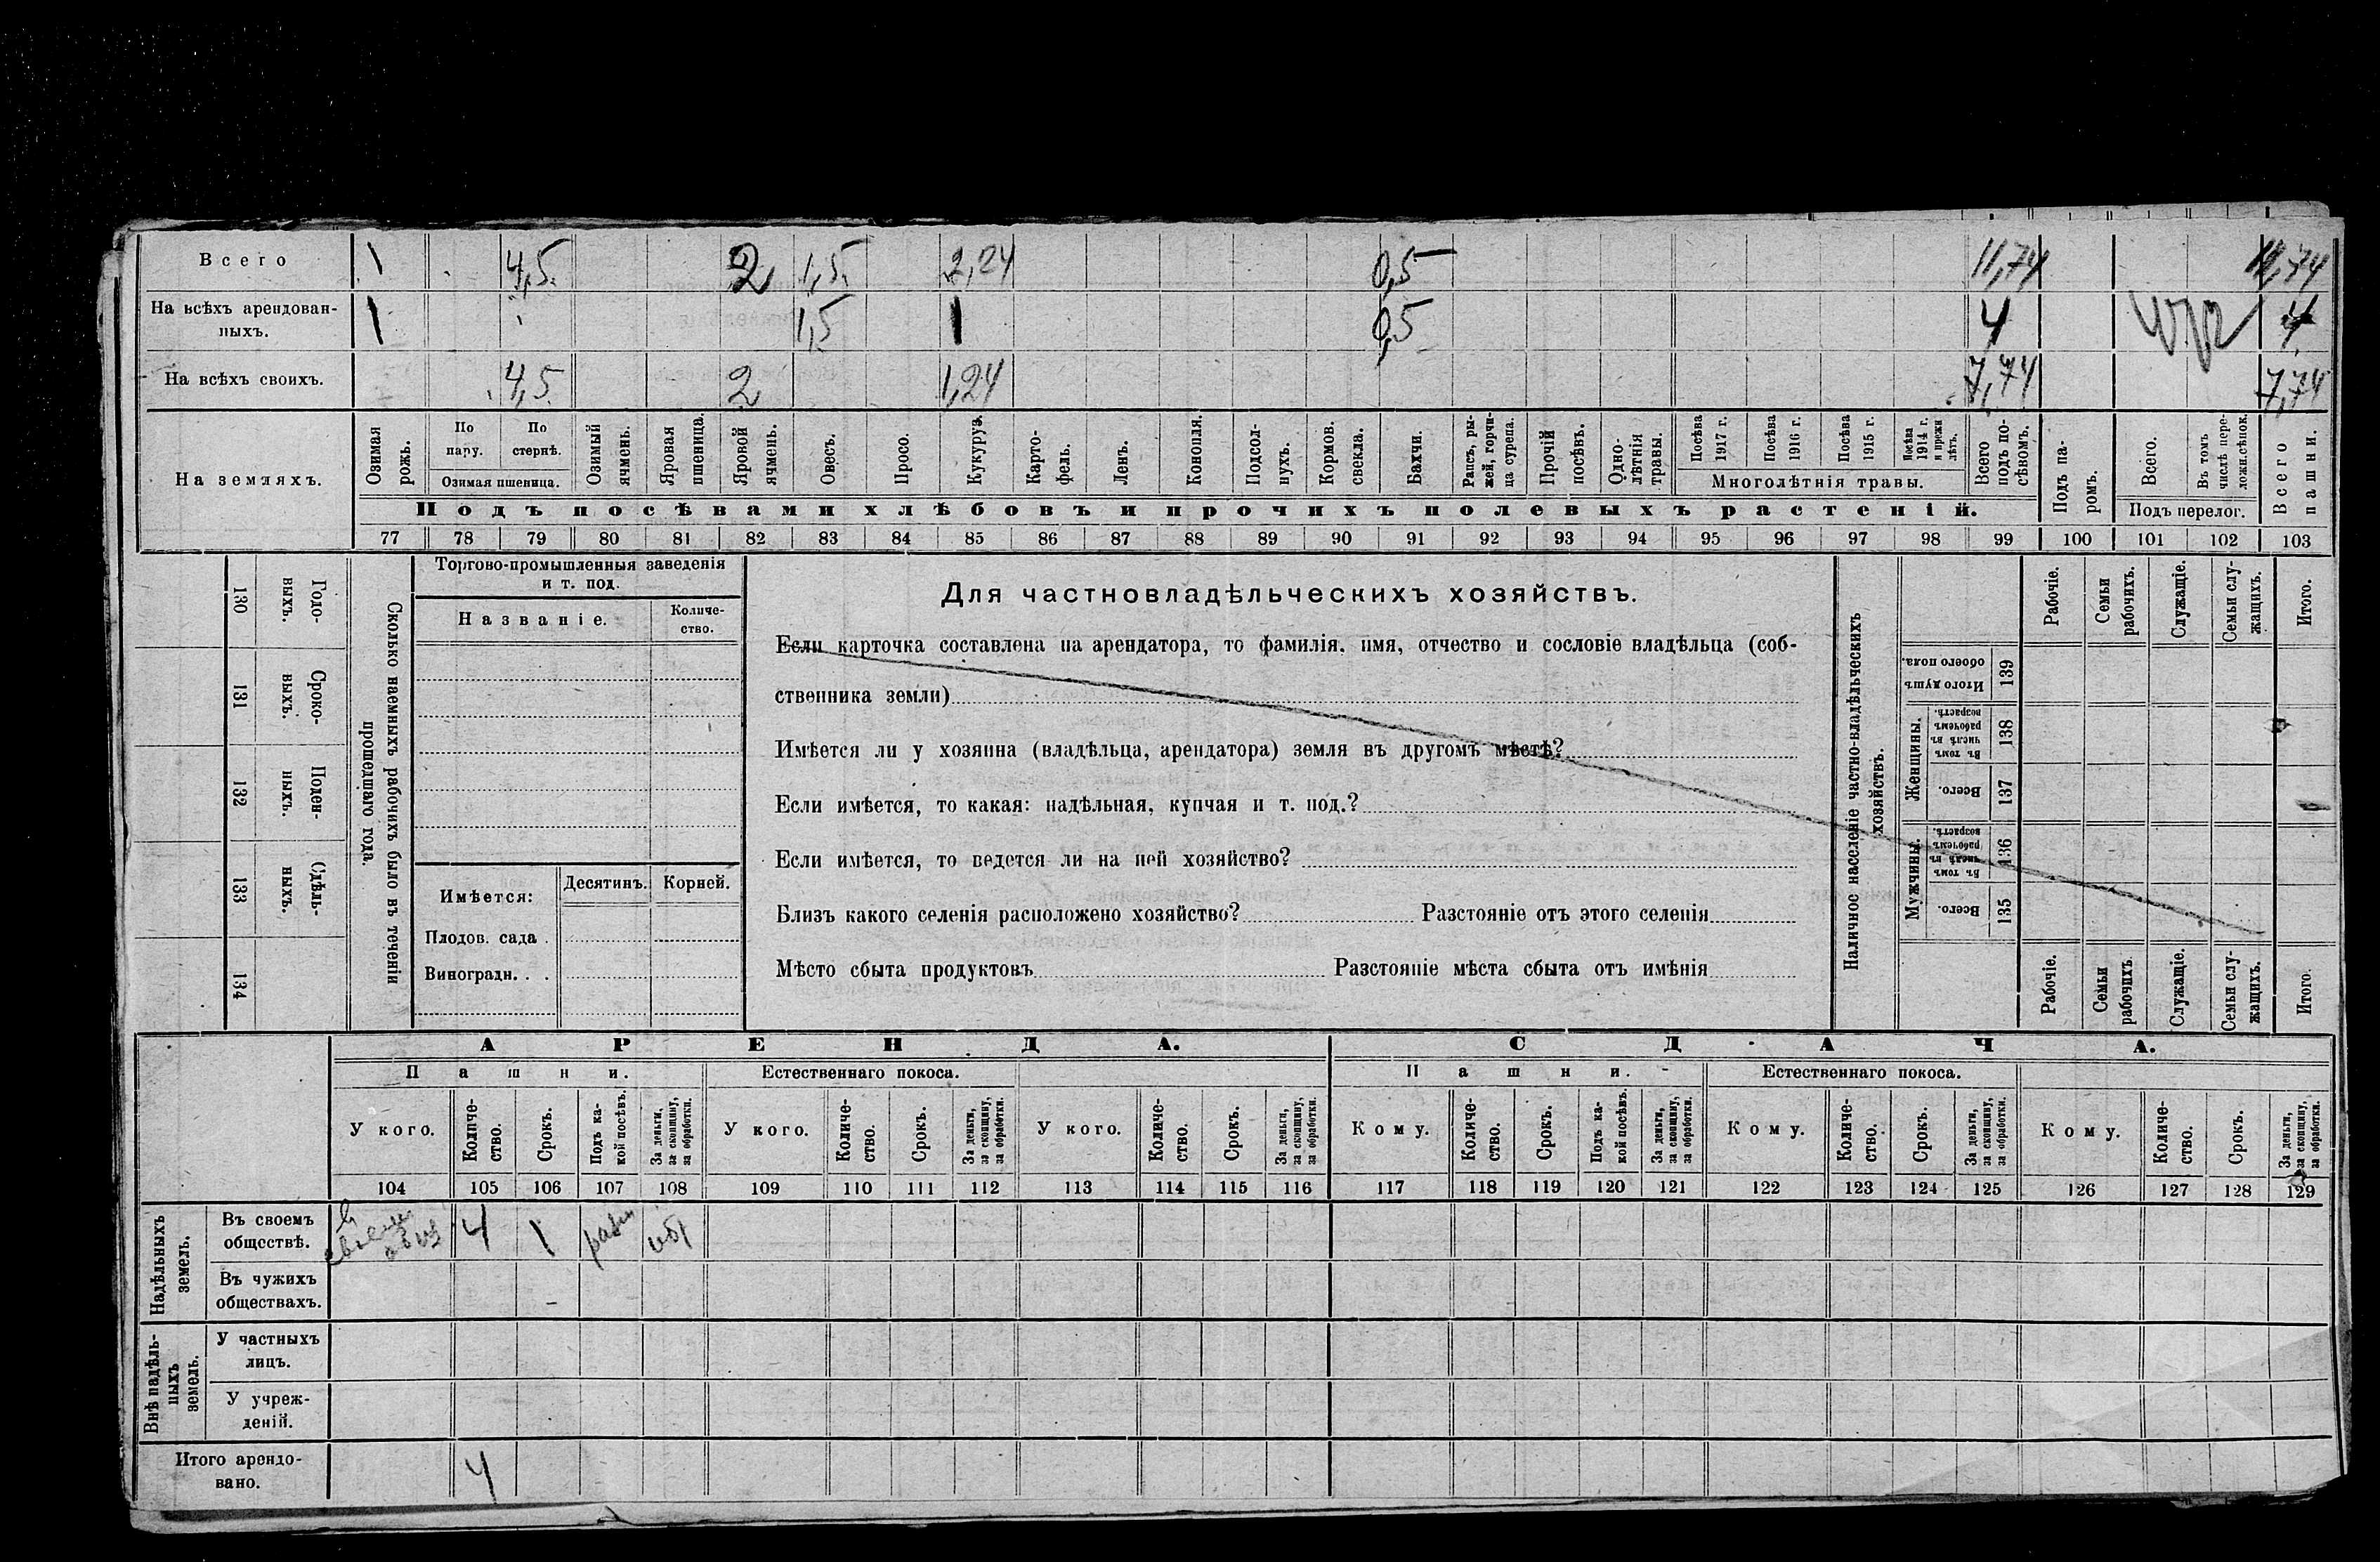 Всего 1 4,5 2 1,5 2,24 0,5 11,74 11,74
На всѣхъ арендован-
ныхъ. 1 1,5 1 0,5 4 4
На всѣхъ своихъ. 4,5 2 1,24 7,74 7,74
На земляхъ.
Озимая рожь.
По пару.
По стернѣ.
Озимая пшеница.
Озимый ячмень.
Яровая пшеница.
Яровой ячмень.
Овесъ.
Просо.
Кукуруз.
Карто-
фель.
Ленъ.
Конопля.
Подсол-
нухъ.
Кормов. свекла.
Бахчи.
Рапсъ, ры-
жей, горчи-
ца сурепа.
Прочій посѣвъ.
Одно-
лѣтнія травы.
Посѣва 1917 г.
Посѣва 1916 г.
Посѣва 1915 г.
Посѣва 1914 г. и прежн лѣтъ.
Многолѣтнія травы.
Всего подъ по-
сѣвомъ.
Подъ па-
ромъ.
Всего.
Въ томъ числѣ пере-
ложн.сѣнок.
Подъ перелог.
Всего пашни.
Подъ посѣвами хлѣбовъ и прочихъ полевыхъ растеній.
77 78 79 80 81 82 83 84 85 86 87 88 89 90 91 92 93 94 95 96 97 98 99 100 101 102 103
130 Годо-
выхъ.
131 Сроко-
выхъ.
132 Поден-
ныхъ.
133 Сдѣль-
ныхъ.
134
Сколько наемныхъ рабочихъ было въ теченіи
прошедшаго года.
Торгово-промышленныя заведенія
и т. под.
Названіе.
Количе-
ство.
Имѣется:
Десятинъ.
Корней.
Плодов. сада .
Виноградн. . .
Для частновладѣльческихъ хозяйствъ.
Если карточка составлена на арендатора, то фамилія, имя, отчество и сословіе владѣльца (соб-
ственника земли)
Имѣется ли у хозяина (владѣльца, арендатора) земля въ другомъ мѣстѣ?
Если имѣется, то какая: надѣльная, купчая и т. под.?
Если имѣется, то ведется ли на ней хозяйство?
Близъ какого селенія расположено хозяйство? Разстояніе отъ этого селенія
Мѣсто сбыта продуктовъ Разстояніе мѣста сбыта отъ имѣнія
Наличное населеніе частно-владѣльческихъ
хозяйствъ.
Рабочіе.
Семьи рабочихъ.
Служащіе.
Семьи слу-
жащихъ.
Итого.
Итого душъ обоего пола. 139
Женщины.
Въ томъ числѣ въ рабочемъ возрастѣ. 138
Всего. 137
Мужчины.
Въ томъ числѣ въ рабочемъ возрастѣ. 136
Всего. 135
Рабочіе.
Семьи рабочихъ.
Служащіе.
Семьи слу-
жащихъ.
Итого.
АРЕНДА. СДАЧА.
Пашни. Естественнаго покоса. Пашни. Естественнаго покоса.
У кого.
Количе-
ство.
Срокъ.
Подъ ка-
кой посѣвъ.
За деньги, за скопщину, за обработки.
У кого.
Количе-
ство.
Срокъ.
За деньги, за скопщину, за обработки.
У кого.
Количе-
ство.
Срокъ.
За деньги, за скопщину, за обработки.
Кому.
Количе-
ство.
Срокъ.
Подъ ка-
кой посѣвъ.
За деньги, за скопщину, за обработки.
Кому.
Количе-
ство.
Срокъ.
За деньги, за скопщину, за обработки.
Кому.
Количе-
ство.
Срокъ.
За деньги, за скопщину, за обработки.
104 105 106 107 108 109 110 111 112 113 114 115 116 117 118 119 120 121 122 123 124 125 126 127 128 129
Надѣльныхъ земель.
Въ своемъ
обществѣ. 4 1
Въ чужихъ
обществахъ.
Внѣ надѣль-
ныхъ земель.
У частныхъ
лицъ.
У учреж-
деній.
Итого арендо-
вано. 4